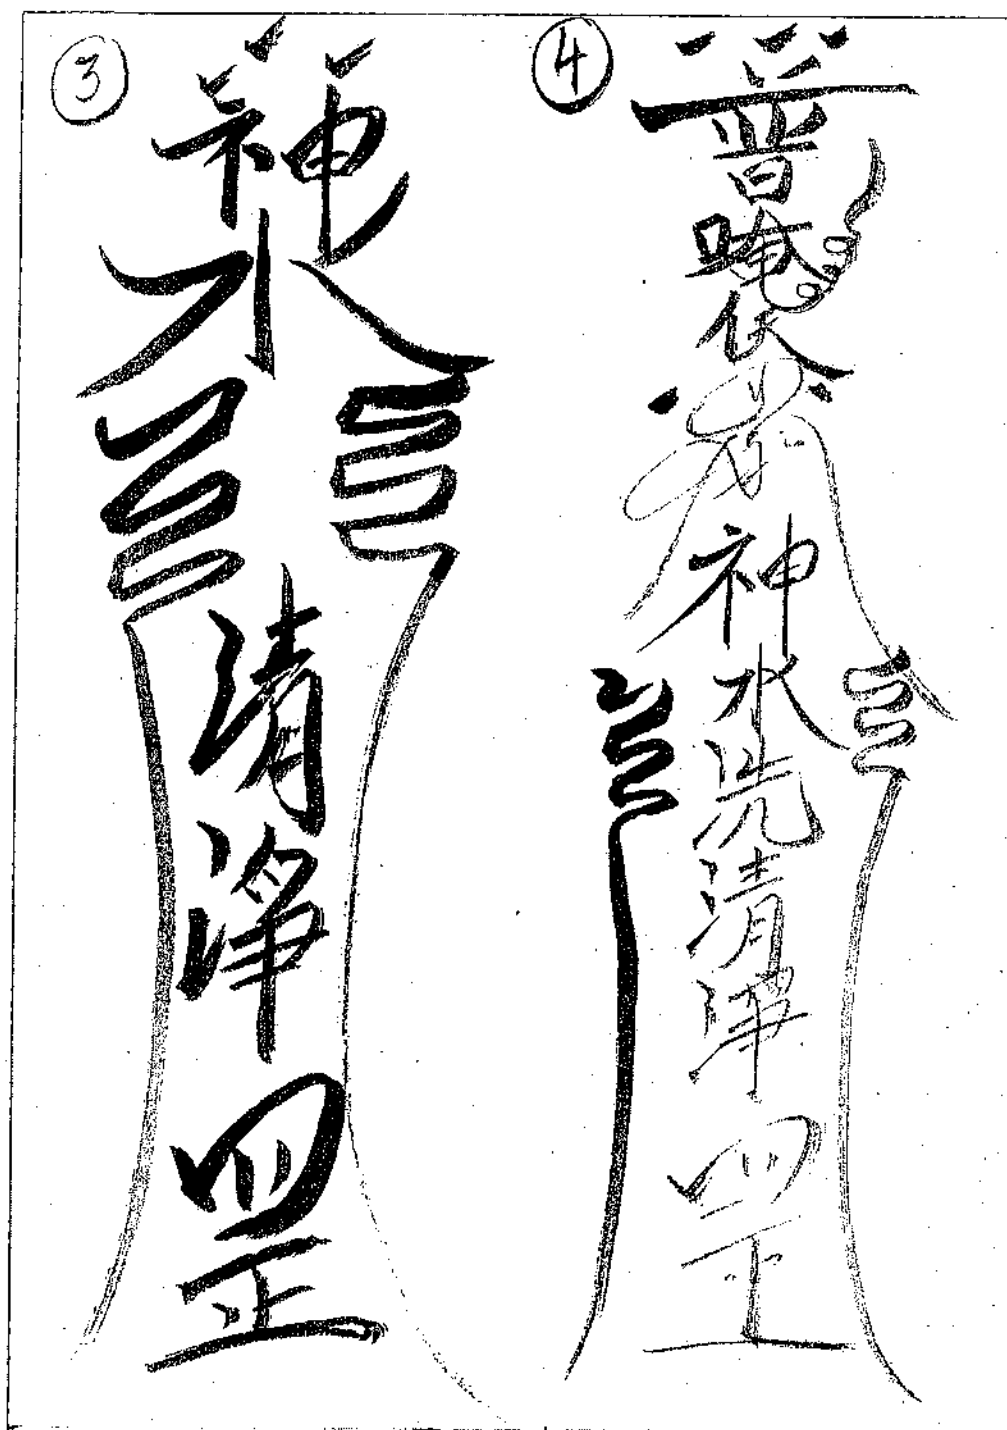 ③
神
水
清
淨
罡
④
普
唵
神
水
洗
清
淨
罡